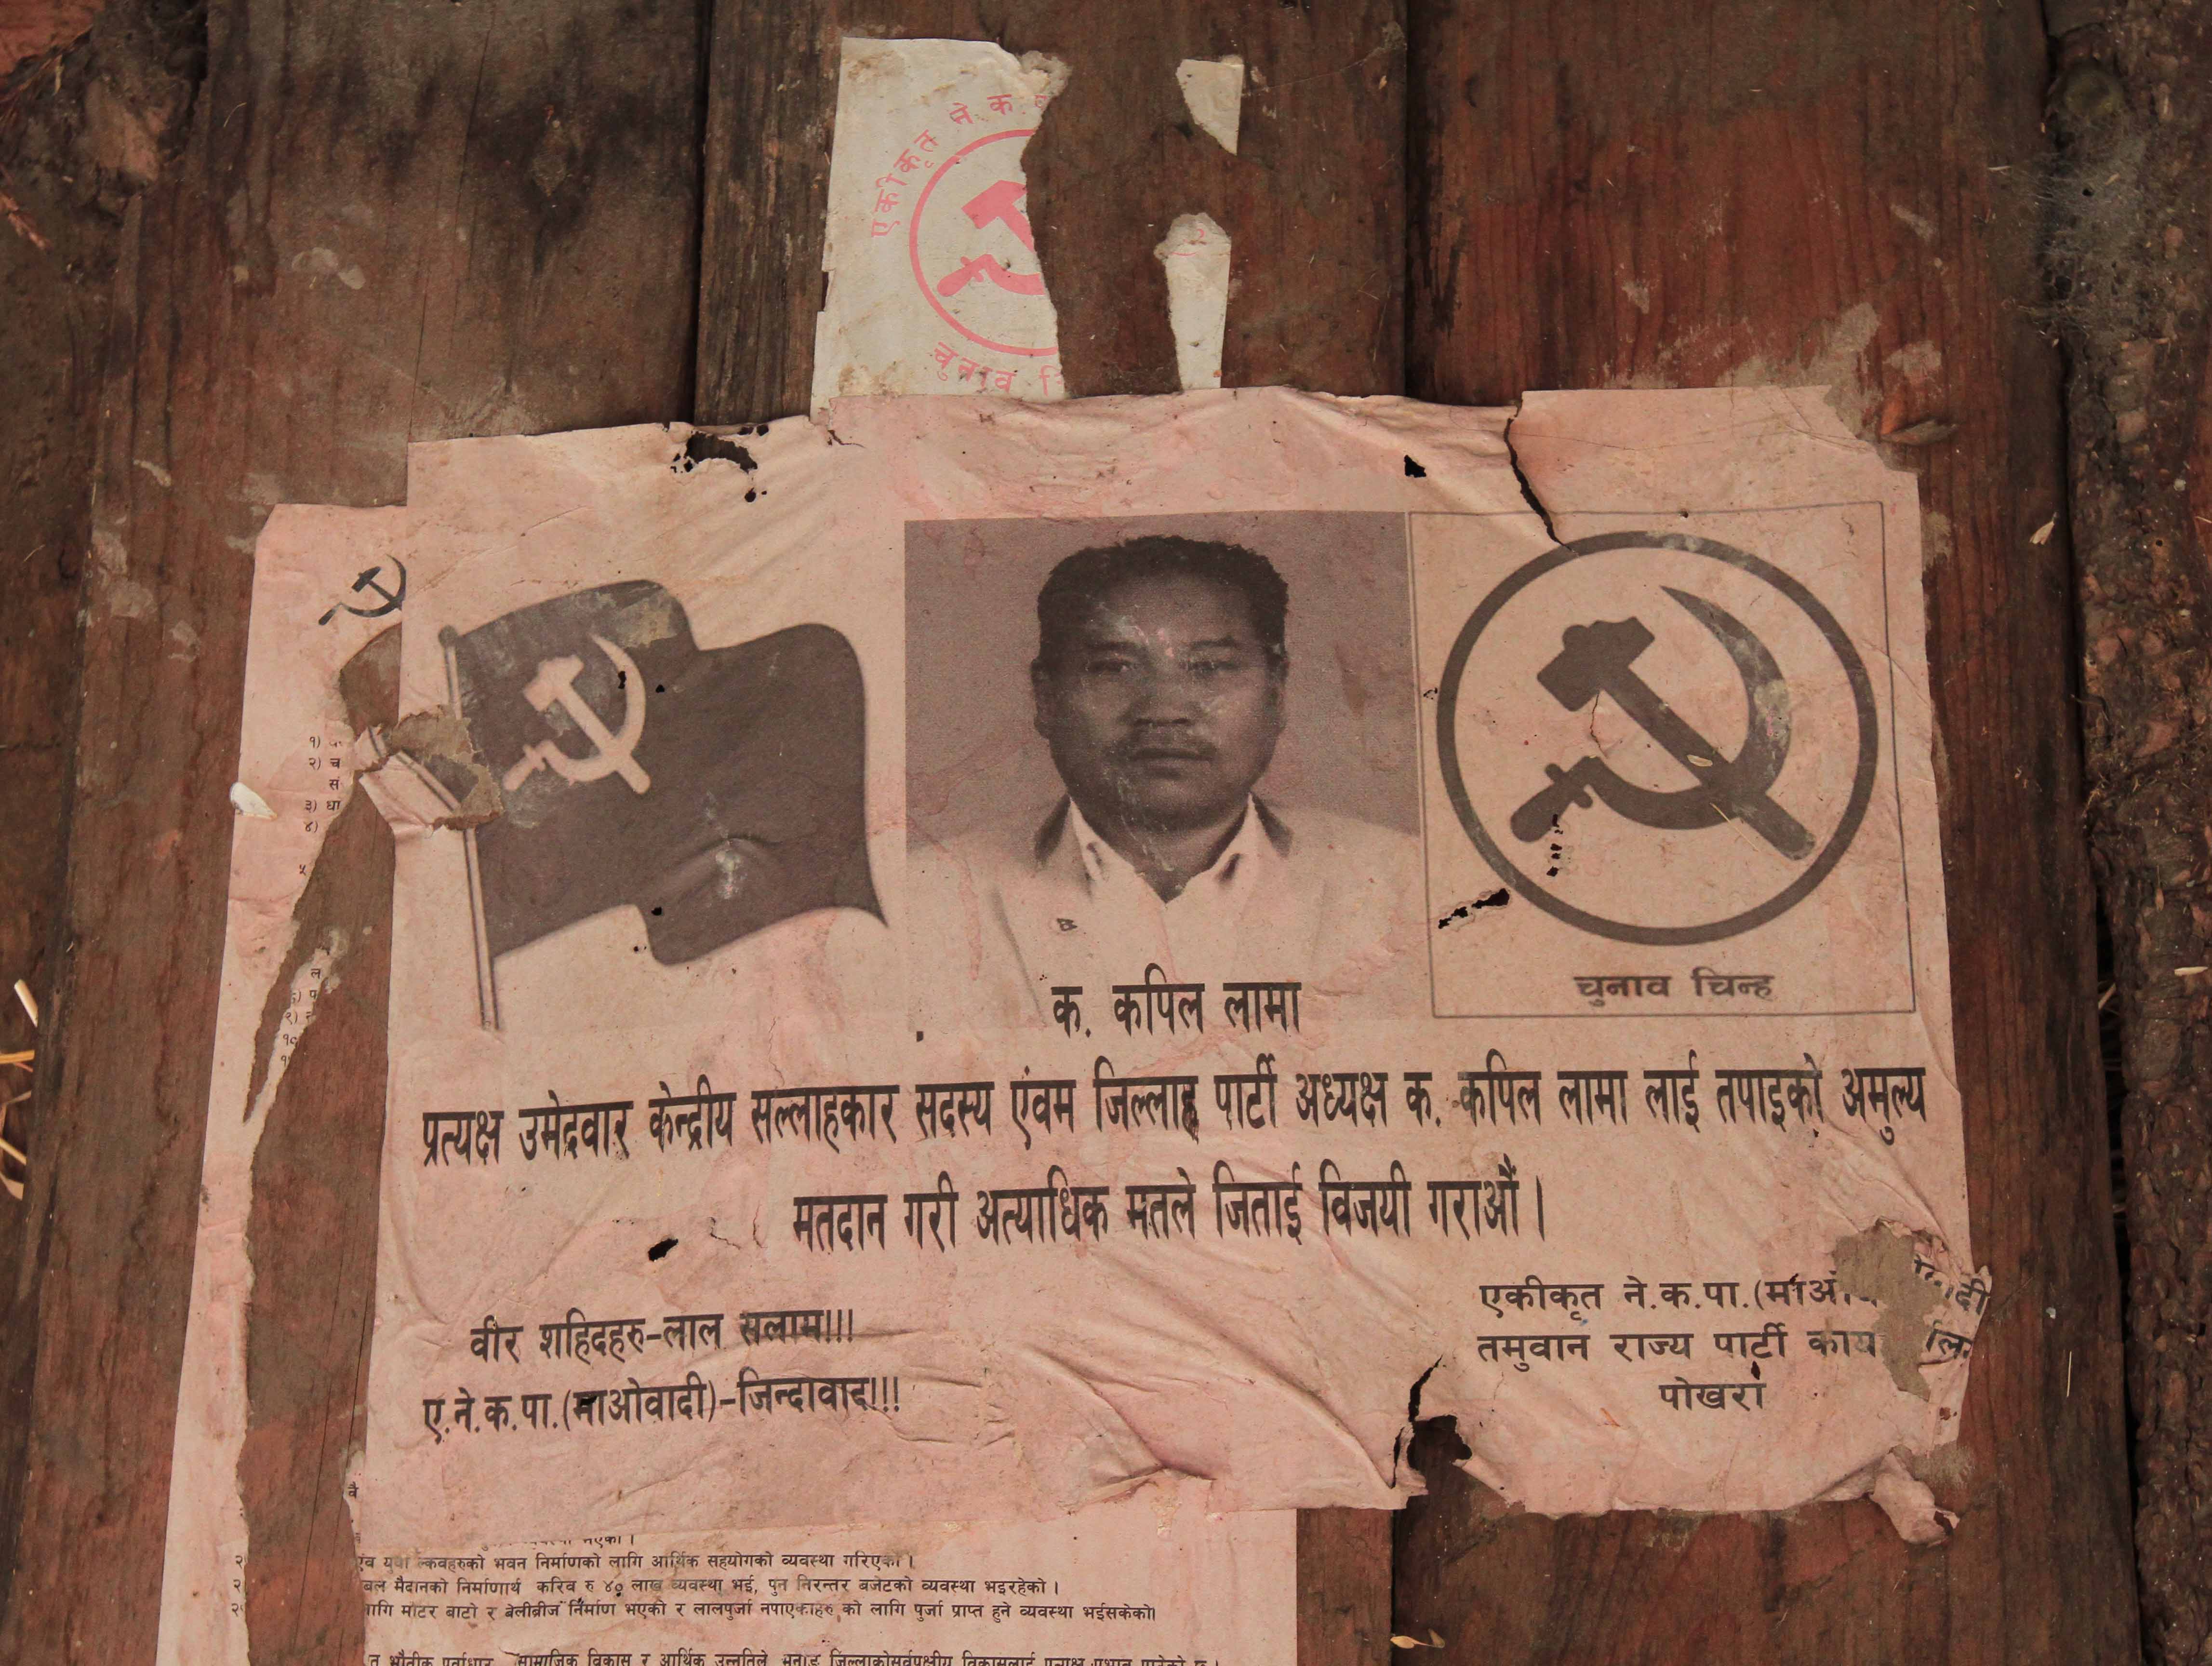 एकीकृत ने क
चुनाव
१)
२) च
सं
३) धा
४)
५
ल
चुनाव चिन्ह
क. कपिल लामा
प्रत्यक्ष उमेदवार केन्द्रीय सल्लाहकार सदस्य एंवम जिल्ला पार्टी अध्यक्ष क. कपिल लामा लाई तपाइको अमुल्य
मतदान गरी अत्याधिक मतले जिताई विजयी गराऔं ।
वीर शहिदहरु-लाल सलाम!!!
ए.ने.क.पा.(माओवादी)-जिन्दावाद!!!
एकीकृत ने.क.पा.(माओ दी
तमुवान राज्य पार्टी काय
पोखरा
भएको ।
एंव युवा क्लवहरुको भवन निर्माणको लागि आर्थिक सहयोगको व्यवस्था गरिएको ।
बल मैदानको निर्माणार्थ करिव रु ४० लाख व्यवस्था भई, पुन निरन्तर बजेटको व्यवस्था भइरहेको ।
लागि मोटर बाटो र बेलीब्रीज निर्माण भएको र लालपुर्जा नपाएकाहरु को लागि पुर्जा प्राप्त हुने व्यवस्था भईसकेको।
सामाजिक विकास र आर्थिक उन्नतिले